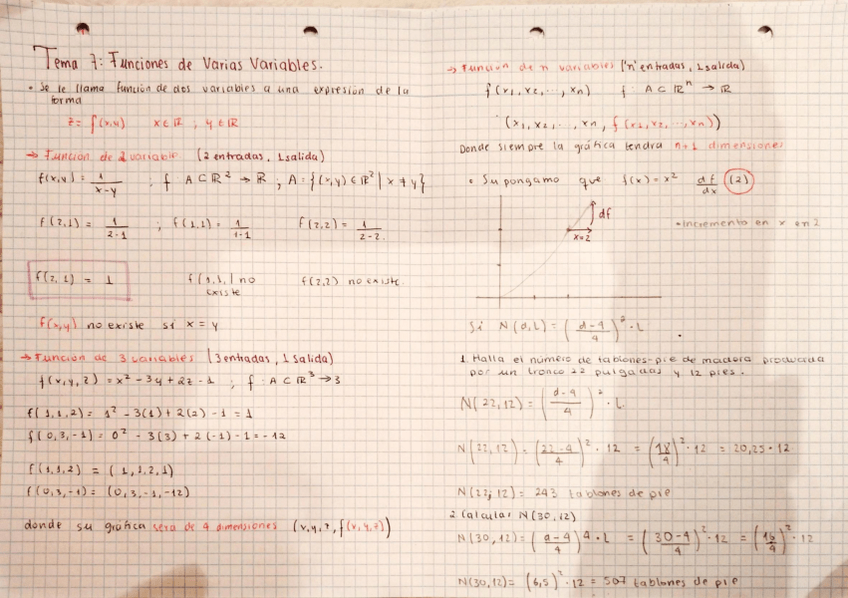 Tema 7: Funciones de Varias Variables.
• Se le llama función de dos variables a una expresión de la
forma
z = f(x,y) x ∈ ℝ ; y ∈ ℝ
→ Función de 2 variable (2 entradas, 1 salida)
f(x,y) = 1/(x-y) ; f: A ⊂ ℝ² → ℝ ; A = {(x,y) ∈ ℝ² | x ≠ y}
f(2,1) = 1/(2-1) ; f(1,1) = 1/(1-1) f(2,2) = 1/(2-2)
f(2,1) = 1 f(1,1) no f(2,2) no existe.
existe
f(x,y) no existe si x = y
→ Función de 3 variables (3 entradas, 1 salida)
f(x,y,z) = x² - 3y + 2z - 1 ; f: A ⊂ ℝ³ → 3
f(1,1,2) = 1² - 3(1) + 2(2) - 1 = 1
f(0,3,-1) = 0² - 3(3) + 2(-1) - 1 = -12
f(1,1,2) = (1,1,2,1)
f(0,3,-1) = (0,3,-1,-12)
donde su gráfica sera de 4 dimensiones (x,y,z,f(x,y,z))
→ Función de n variables ('n' entradas, 1 salida)
f(x₁,x₂,...,xn) f: A ⊂ ℝⁿ → ℝ
(x₁,x₂,...,xn, f(x₁,x₂,...,xn))
Donde siempre la gráfica tendra n+1 dimensiones
• Supongamo que f(x) = x² df/dx (2)
df
x=2
• Incremento en x en 2
Si N(d,L) = ((d-4)/4)² · L
1. Halla el número de tablones-pie de madera producida
por un tronco 22 pulgadas y 12 pies.
N(22,12) = ((d-4)/4)² · L
N(22,12) = ((22-4)/4)² · 12 = (18/4)² · 12 = 20,25 · 12
N(22,12) = 243 tablones de pie
2. Calcular N(30,12)
N(30,12) = ((d-4)/4)⁴ · L = ((30-4)/4)² · 12 = (16/4)² · 12
N(30,12) = (6,5)² · 12 = 507 tablones de pie